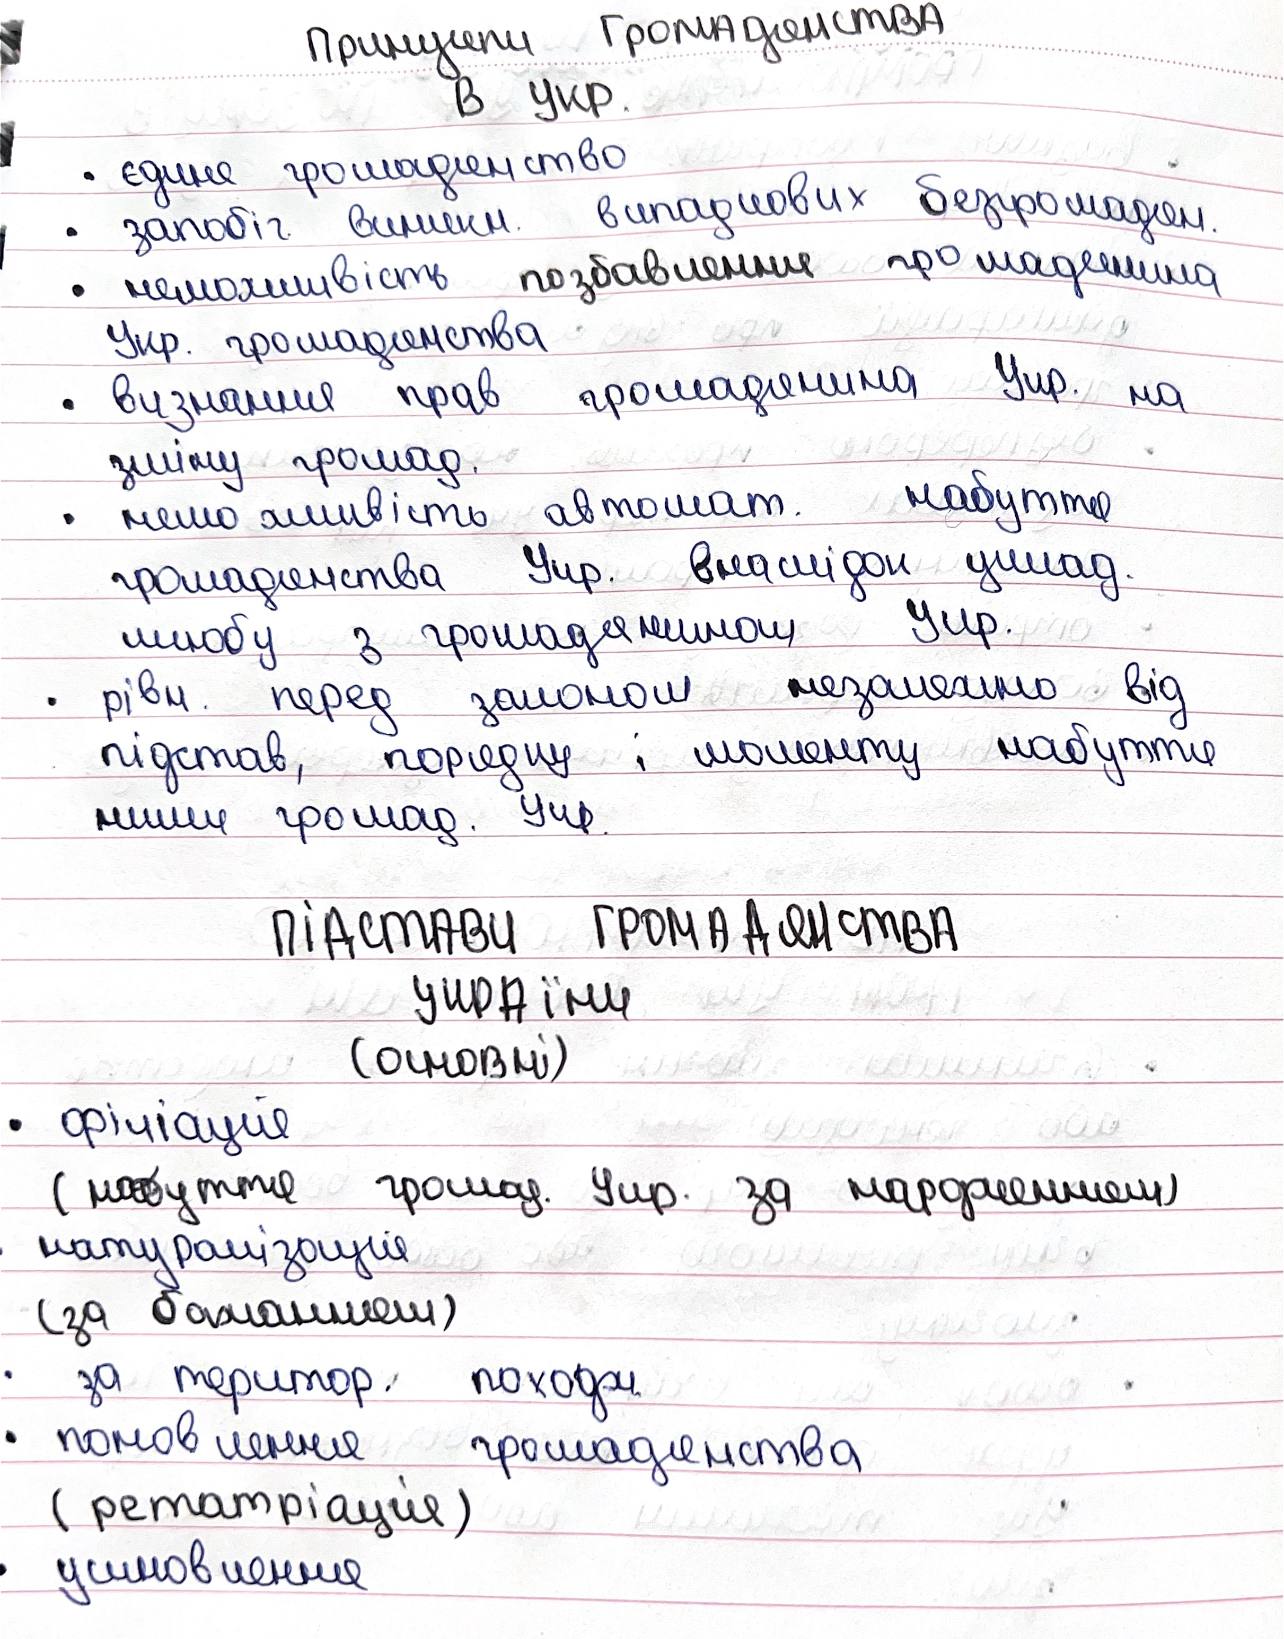 Принципи ГРОМАдянСТВА
В УКР.
• єдине громадянство
• запобіг. виникн. випадкових безгромадян.
• неможливість позбавлення громадянина
Укр. громадянства
• визнання прав громадянина Укр. на
зміну громад.
• неможливість автомат. набуття
громадянства Укр. внаслідок уклад.
шлюбу з громадянином Укр.
• рівн. перед законом незалежно від
підстав, порядку і моменту набуття
ними громад. Укр.
ПІДСТАВИ ГРОМАДЯНСТВА
УКРАЇНИ
(основні)
• філіація
(набуття громад. Укр. за народженням)
• натуралізація
(за бажанням)
• за територ. походж
• поновлення громадянства
(репатріація)
• усиновлення